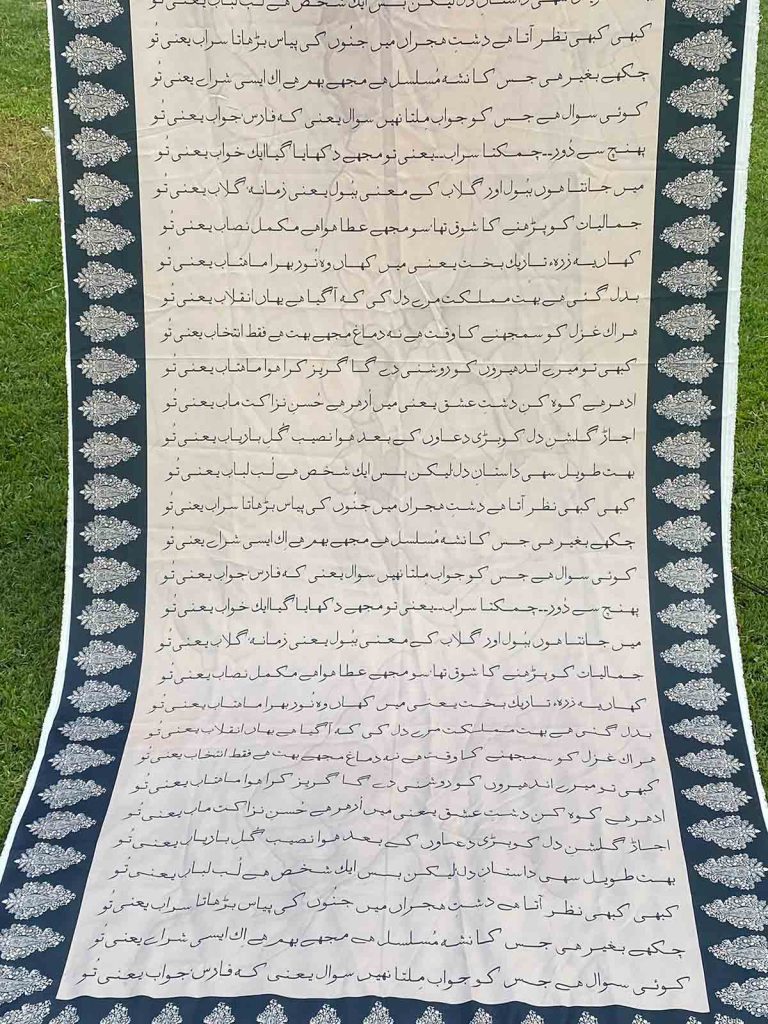 سہی داستانِ دل لیکن بس ایک شخص ہے لُب لباب یعنی تُو
کبھی کبھی نظر آتا ہے دشتِ ہجراں میں جنُوں کی پیاس بڑھاتا سراب یعنی تُو
چکھے بغیر ہی جس کا نشہ مُسلسل ہے مجھے بہم ہے اِک ایسی شراے یعنی تُو
کوئی سوال ہے جس کو جواب مِلتا نہیں سوال یعنی کہ فارس جواب یعنی تُو
پہنچ سے دُور۔۔چمکتا سراب۔یعنی تو مجھے دکھایا گیا ایک خواب یعنی تُو
میں جانتا ہوں ببُول اور گلاب کے معنی ببُول یعنی زمانہ، گلاب یعنی تُو
جمالیات کو پڑھنے کا شوق تھا سو مجھے عطا ہوا ہے مکمل نصاب یعنی تُو
کہاں یہ زرہء تاریک بخت یعنی میں کہاں وہ نُور بھرا ماہتاب یعنی تُو
بدل گئی ہے بہت مملکت مرے دل کی کہ آ گیا ہے یہاں انقلاب یعنی تُو
ہر اک غزل کو سمجھنے کا وقت ہے نہ دماغ مجھے بہت ہے فقط انتخاب یعنی تُو
کبھی تو میرے اندھیروں کو روشنی دے گا گریز کرا ہوا ماہتاب یعنی تُو
ادھر ہے کوہ کن دشت عشق یعنی میں اُدھر ہے حُسن نزاکت ماب یعنی تُو
اجاڑ گلشنِ دل کو بڑی دعاوں کے بعد ہوا نصیب گلِ باریاب یعنی تُو
بہت طویل سہی داستانِ دل لیکن بس ایک شخص ہے لُب لباب یعنی تُو
کبھی کبھی نظر آتا ہے دشتِ ہجراں میں جنُوں کی پیاس بڑھاتا سراب یعنی تُو
چکھے بغیر ہی جس کا نشہ مُسلسل ہے مجھے بہم ہے اِک ایسی شراے یعنی تُو
کوئی سوال ہے جس کو جواب مِلتا نہیں سوال یعنی کہ فارس جواب یعنی تُو
پہنچ سے دُور۔۔چمکتا سراب۔یعنی تو مجھے دکھایا گیا ایک خواب یعنی تُو
میں جانتا ہوں ببُول اور گلاب کے معنی ببُول یعنی زمانہ، گلاب یعنی تُو
جمالیات کو پڑھنے کا شوق تھا سو مجھے عطا ہوا ہے مکمل نصاب یعنی تُو
کہاں یہ زرہء تاریک بخت یعنی میں کہاں وہ نُور بھرا ماہتاب یعنی تُو
بدل گئی ہے بہت مملکت مرے دل کی کہ آ گیا ہے یہاں انقلاب یعنی تُو
ہر اک غزل کو سمجھنے کا وقت ہے نہ دماغ مجھے بہت ہے فقط انتخاب یعنی تُو
کبھی تو میرے اندھیروں کو روشنی دے گا گریز کرا ہوا ماہتاب یعنی تُو
ادھر ہے کوہ کن دشت عشق یعنی میں اُدھر ہے حُسن نزاکت ماب یعنی تُو
اجاڑ گلشنِ دل کو بڑی دعاوں کے بعد ہوا نصیب گلِ باریاب یعنی تُو
بہت طویل سہی داستانِ دل لیکن بس ایک شخص ہے لُب لباب یعنی تُو
کبھی کبھی نظر آتا ہے دشتِ ہجراں میں جنُوں کی پیاس بڑھاتا سراب یعنی تُو
چکھے بغیر ہی جس کا نشہ مُسلسل ہے مجھے بہم ہے اِک ایسی شراے یعنی تُو
کوئی سوال ہے جس کو جواب مِلتا نہیں سوال یعنی کہ فارس جواب یعنی تُو